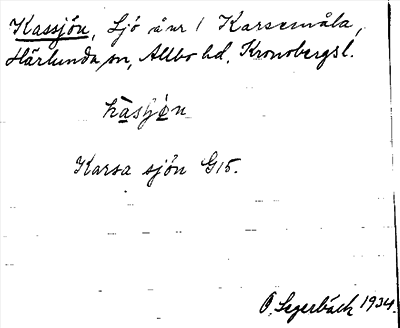 Kassjön, Sjö å nr 1 Karsemåla,
Härlunda sn, Allbo hd, Kronobergs l.
kàsʃön
Karsa sjön G15.
O. Segerbäck 1934.